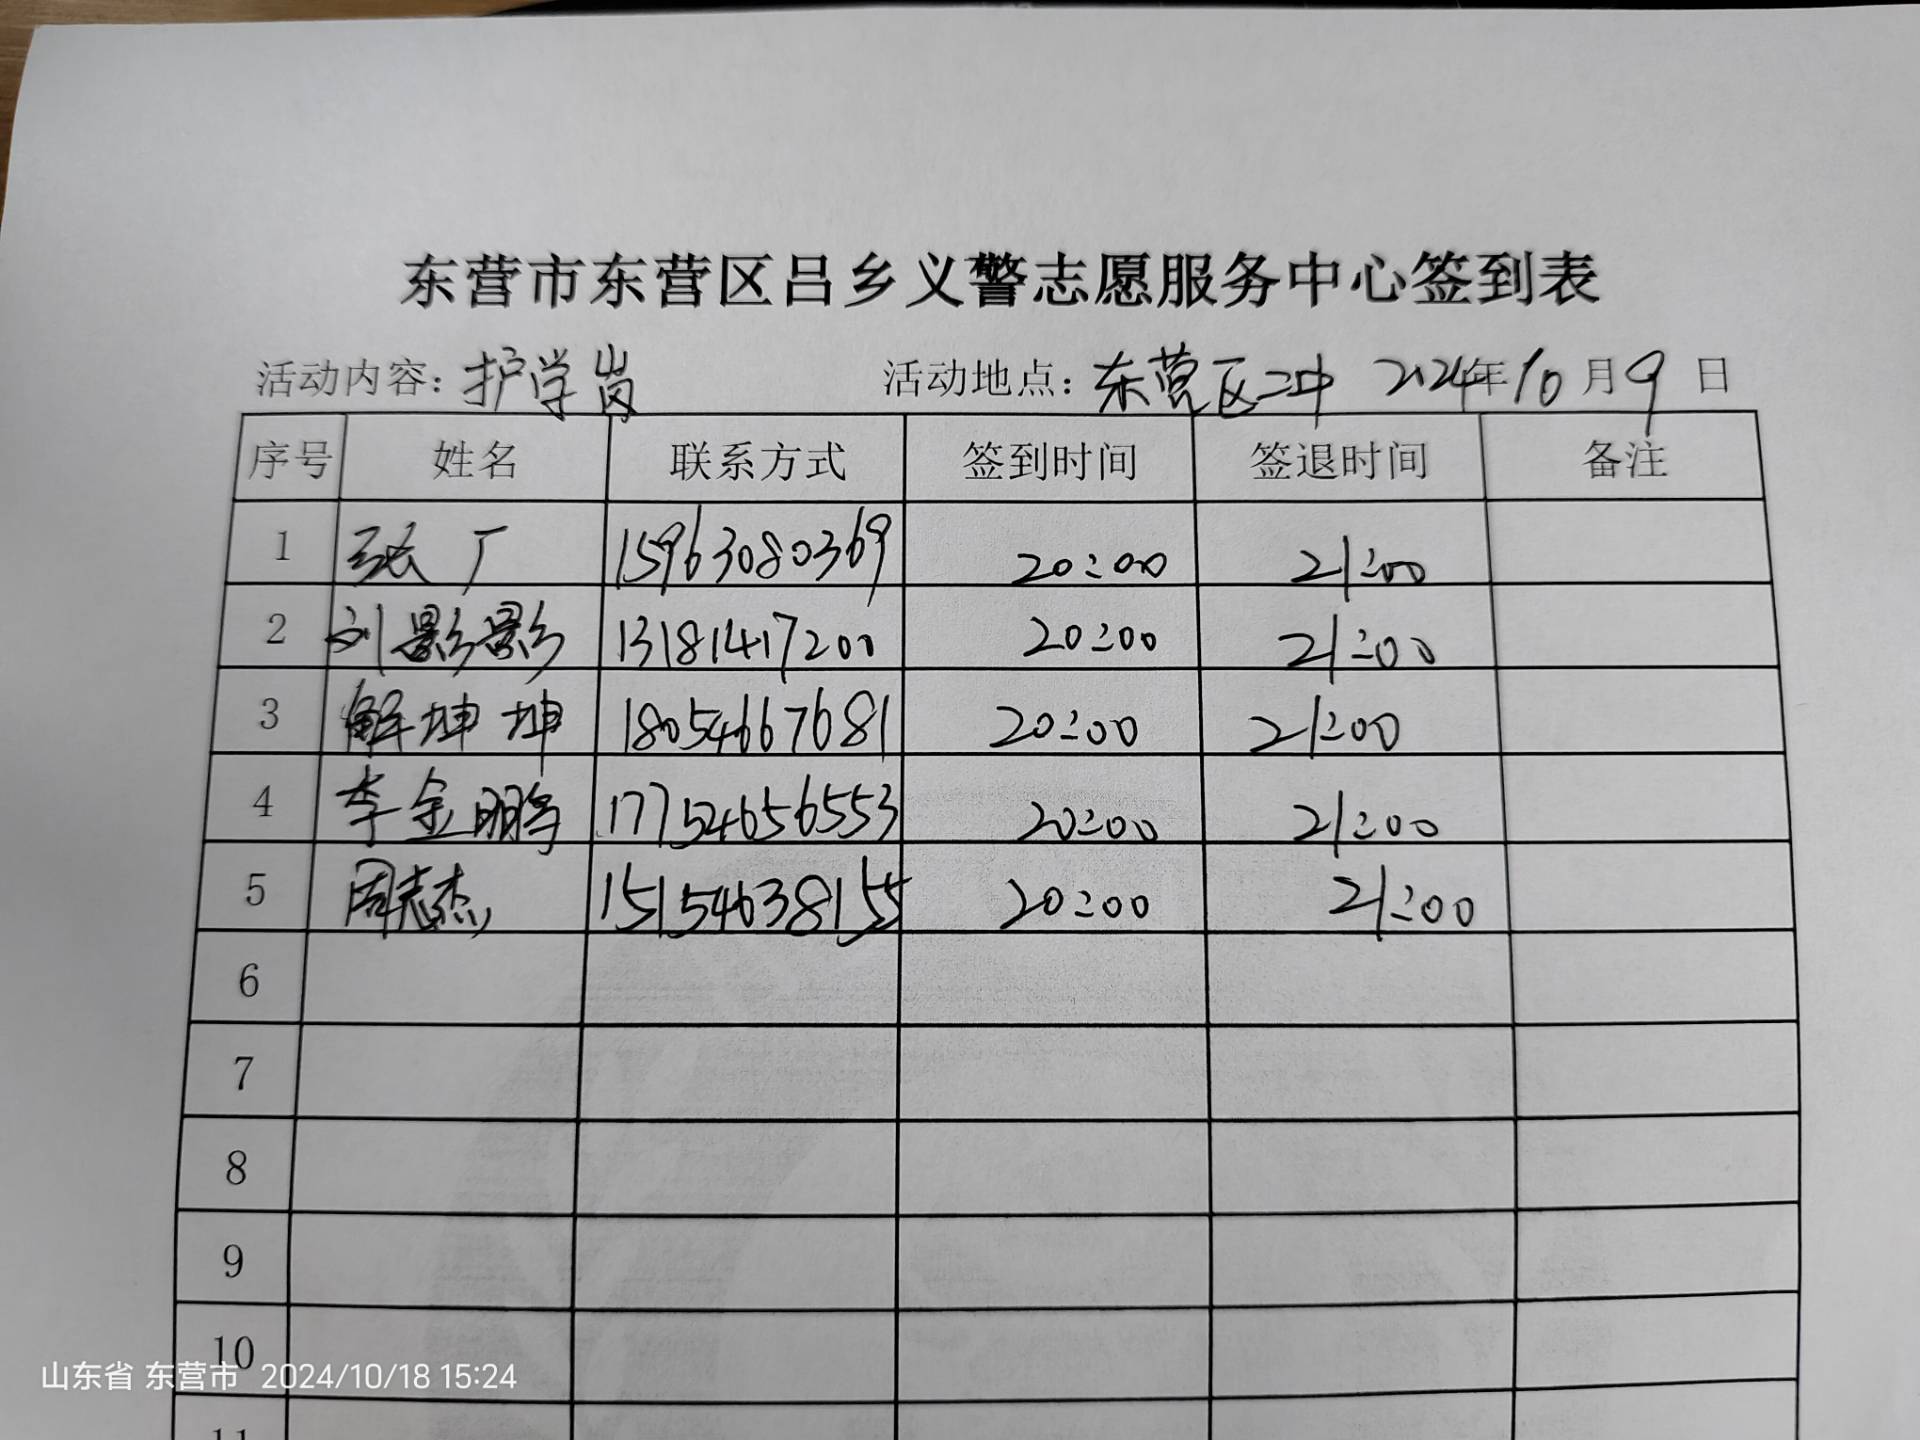 东营市东营区吕乡义警志愿服务中心签到表
活动内容：护学岗 活动地点：东营区二中 2024年10月9日
序号 姓名 联系方式 签到时间 签退时间 备注
1 张广 15963080369 20:00 21:00
2 刘影影 13181417200 20:00 21:00
3 解坤坤 18054667681 20:00 21:00
4 李金鹏 17754656553 20:00 21:00
5 周志杰 15154638155 20:00 21:00
6
7
8
9
10
山东省 东营市 2024/10/18 15:24
11